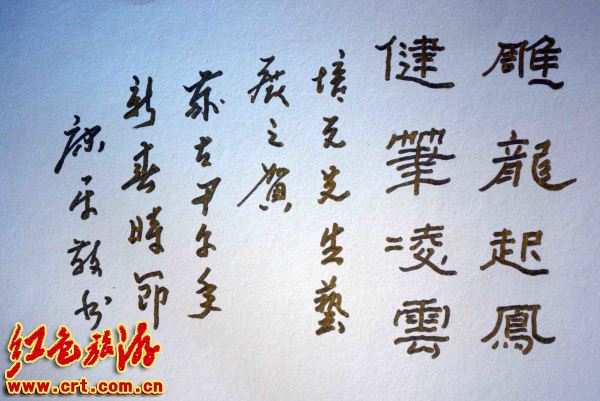 雕龍起鳳
健筆凌雲
培元先生藝
展之賀
歲在甲午年
新春時節
康平敬书
红色旅游
www.crt.com.cn